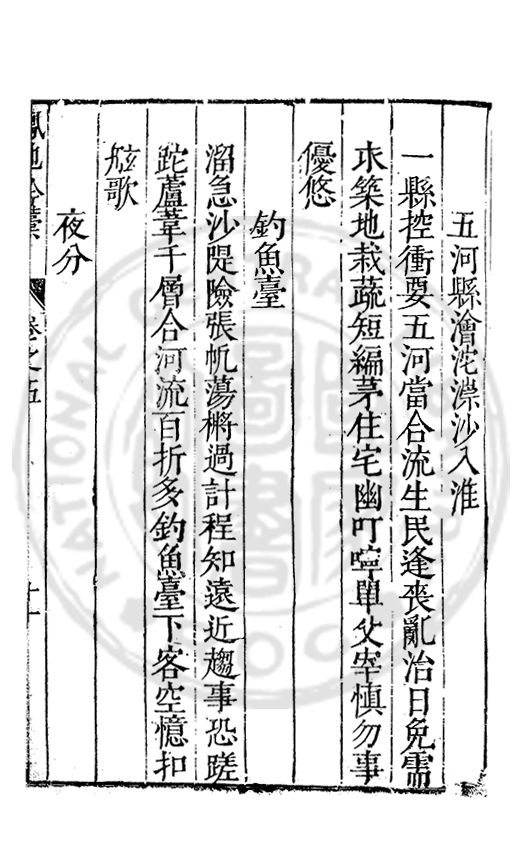 五河縣澮沱漴沙入淮
一縣控衝要五河當合流生民逢喪亂治日免需
求築地栽蔬短編茅住宅幽叮嚀單父宰慎勿事
優悠
釣魚臺
溜急沙隄險張帆蕩槳過計程知遠近趨事恐蹉
跎蘆葦千層合河流百折多釣魚臺下客空憶扣
舷歌
夜分
卷之五